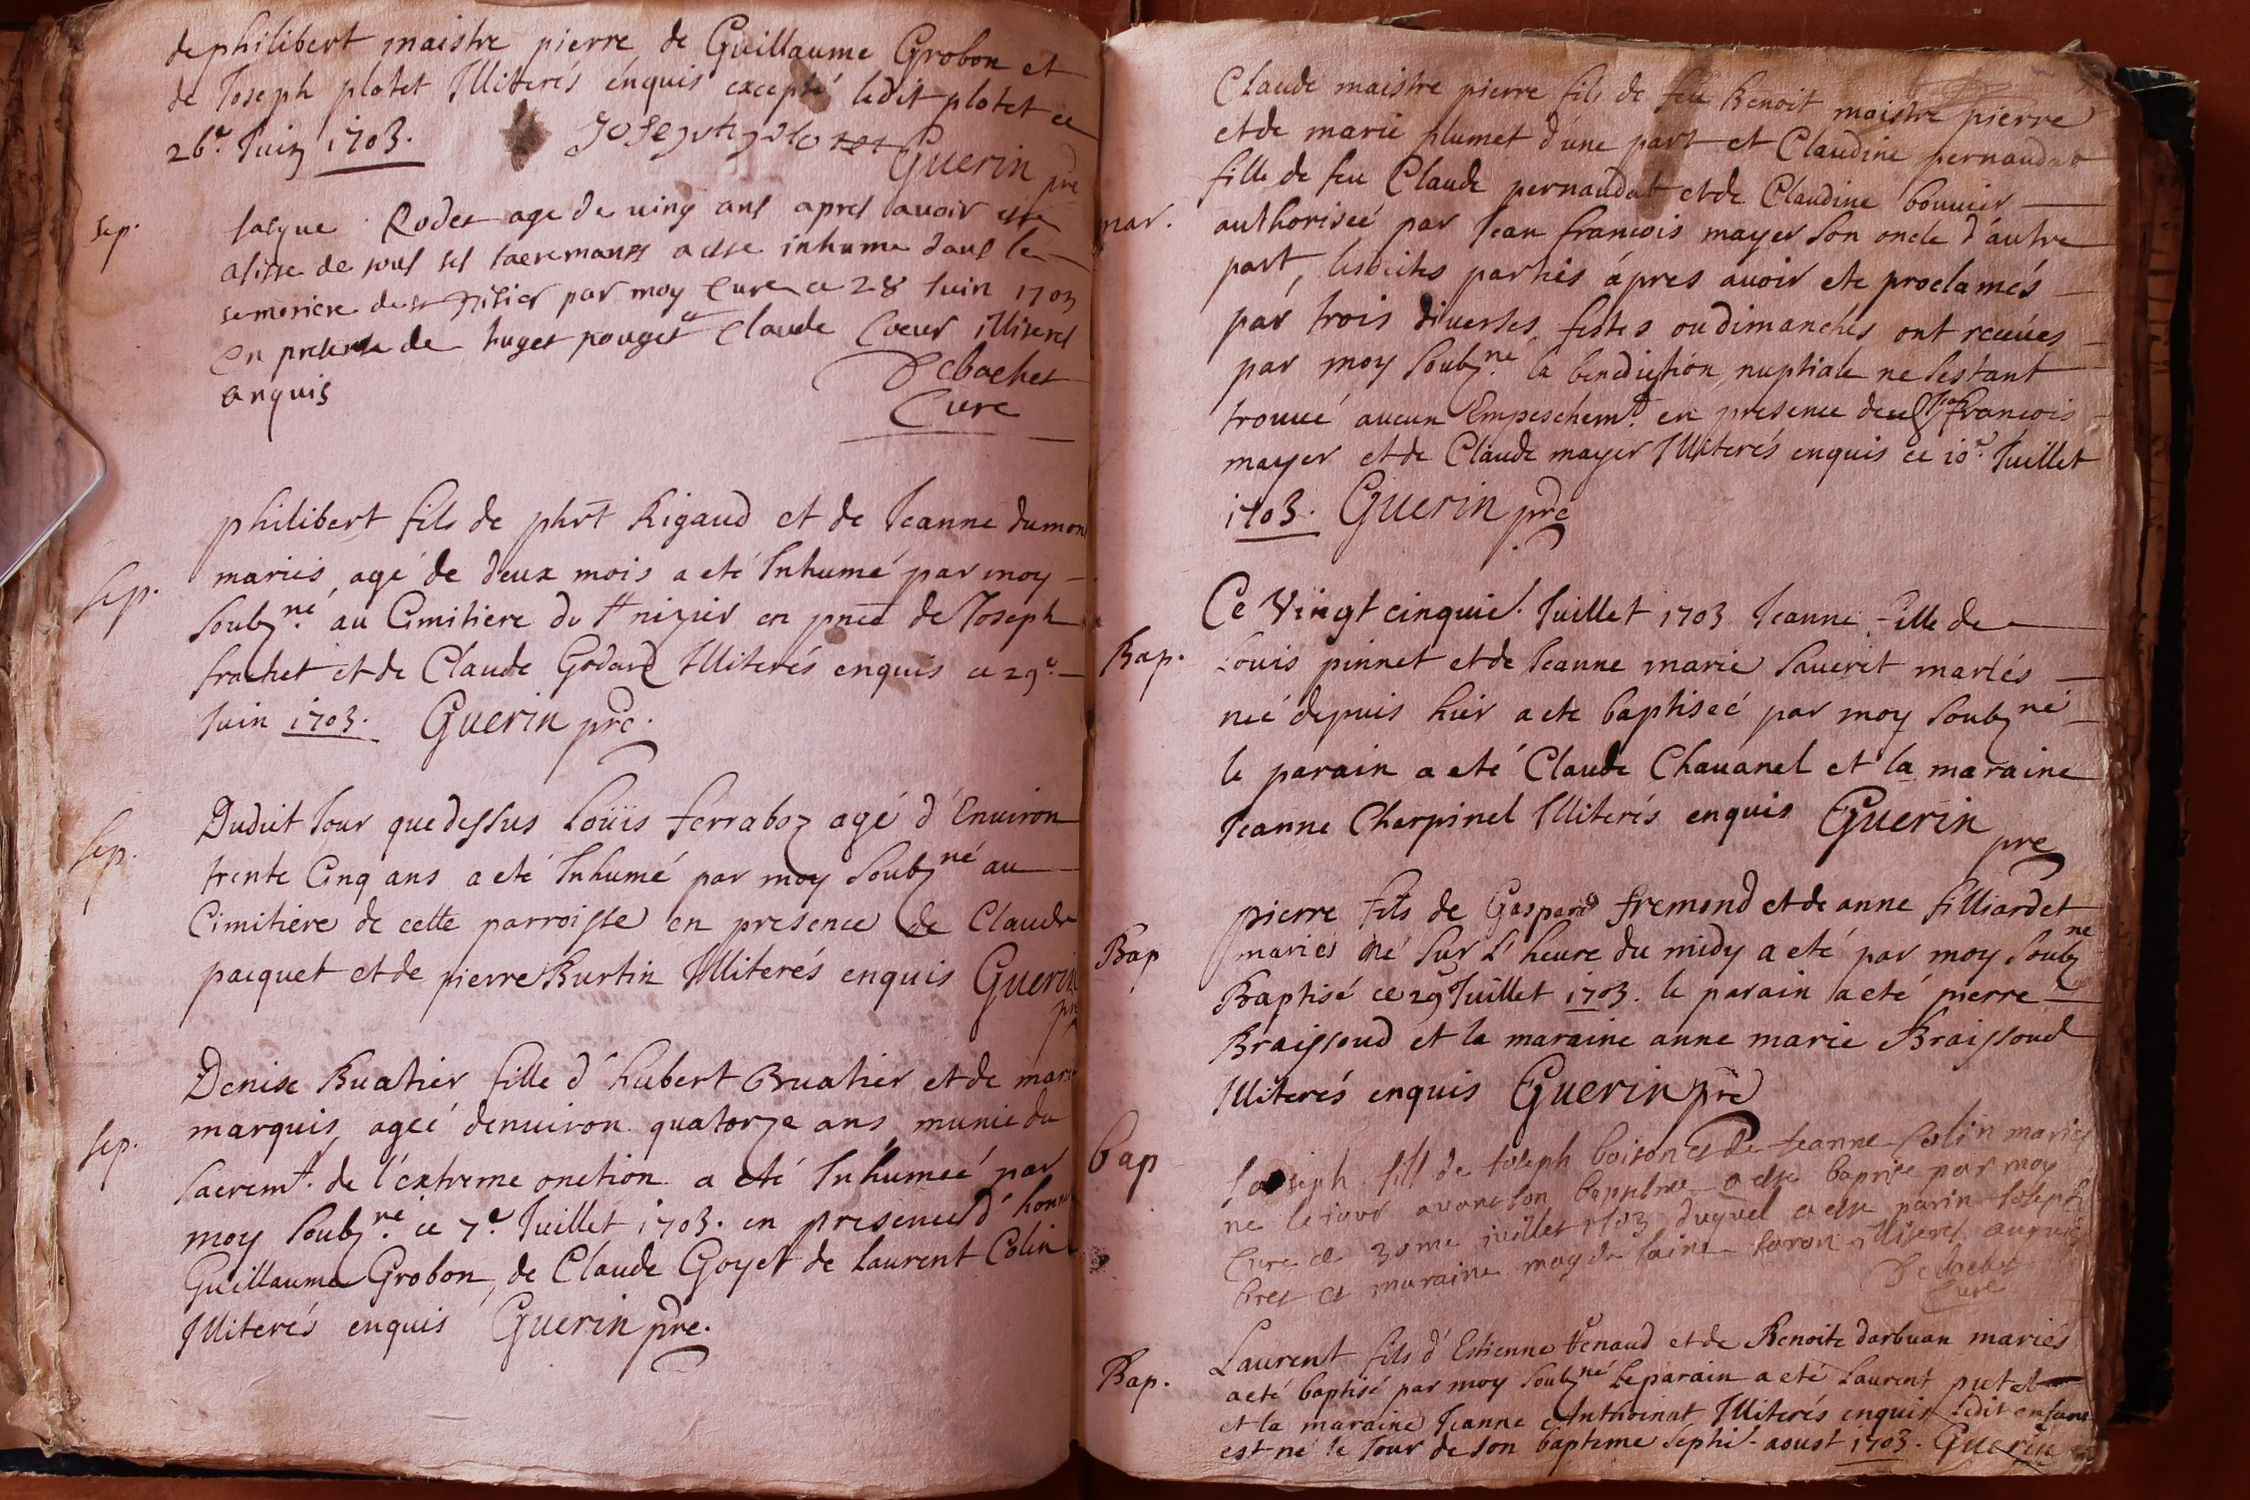 de philibert maistre pierre de Guillaume Grobon et
de Joseph plotet Illiterés énquis excepté ledit plotet ce
26.e Juin 1703.
Joseph plotet Guerin pre
sep.
Jacque Rodet age de ving ans apres avoir este
asiste de tous ses sacremants a este inhume dans le
semetiere de st nisier par moy Cure ce 28 Juin 1703
en presence de huget pouget et Claude Coeur illiteres
anquis
Debochet
Cure
sep.
philibert fils de phrt Rigaud et de Jeanne dumon
mariés, agé de deux mois a eté Inhumé par moy
soubzné au Cimitiere de st nizier en pnce de Joseph
frachet et de Claude Godard Illiterés enquis ce 29.e
Juin 1703. Guerin pre.
sep.
Dudit Jour que dessus Loüis ferraboz agé d'Environ
trente Cinq ans a eté Inhumé par moy soubzné au
Cimitiere de cette parroisse en presence de Claude
pacquet et de pierre Burtin Illiterés enquis Guerin
pre
sep.
Denise Buatier fille d'hubert Buatier et de marie
marquis, agéé denuiron quatorze ans munie du
sacremt. de l'éxtreme onction a eté Inhumeé par
moy soubzné. ce 7.e Juillet 1703. en presence d'honn
Guillaume Grobon, de Claude Goyet de Laurent Colin
Illiterés enquis Guerin pre.
mar.
Claude maistre pierre fils de feu Benoit maistre pierre
et de marie plumet d'une part et Claudine pernaudat
fille de feu Claude pernaudat et de Claudine bouuier
authoriseé par Jean francois mayer son oncle d'áutre
part, lesdites parties ápres auoir ete proclamés
par trois diuerses festes ou dimanches ont receües
par moy soubzné. la benediction nuptiale ne sestant
trouué aucun Empeschemt. en presence francois
mayer et de Claude mayer Illiterés enquis ce 10.e Juillet
1703. Guerin pre
Bap.
Ce Vingt cinquie. Juillet 1703 Jeanne fille de
Louis pinnet et de Jeanne marie saueret mariés
neé depuis hier a ete baptiseé par moy soubzné
le parain a eté Claude Chauanel et la maraine
Jeanne Charpinel Illiterés enquis Guerin
pre
Bap
pierre fils de Gaspard fremond et de anne filliardet
mariés né sur l'heure du midy a eté par moy soubzné
Baptisé ce 29 Juillet 1703. le parain a eté pierre
Braissoud et la maraine anne marie Braissoud
Illiterés enquis Guerin pre
bap
Joseph fils de Joseph boison et de Jeanne Colin maries
ne le jour avant son baptesme a este baptise par moy
Cure ce 30me juillet 1703 duquel a este parin Joseph
bret et maraine illiteres anquis
Debochet
Cure
Bap.
Laurent fils d'Estienne Venaud et de Benoite darbuan mariés
a eté baptisé par moy soubzné le parain a eté Laurent putet
et la maraine Jeanne Anthoinat Illiterés enquis ledit enfant
est né le Jour de son bapteme septie. aoust 1703. Guerin